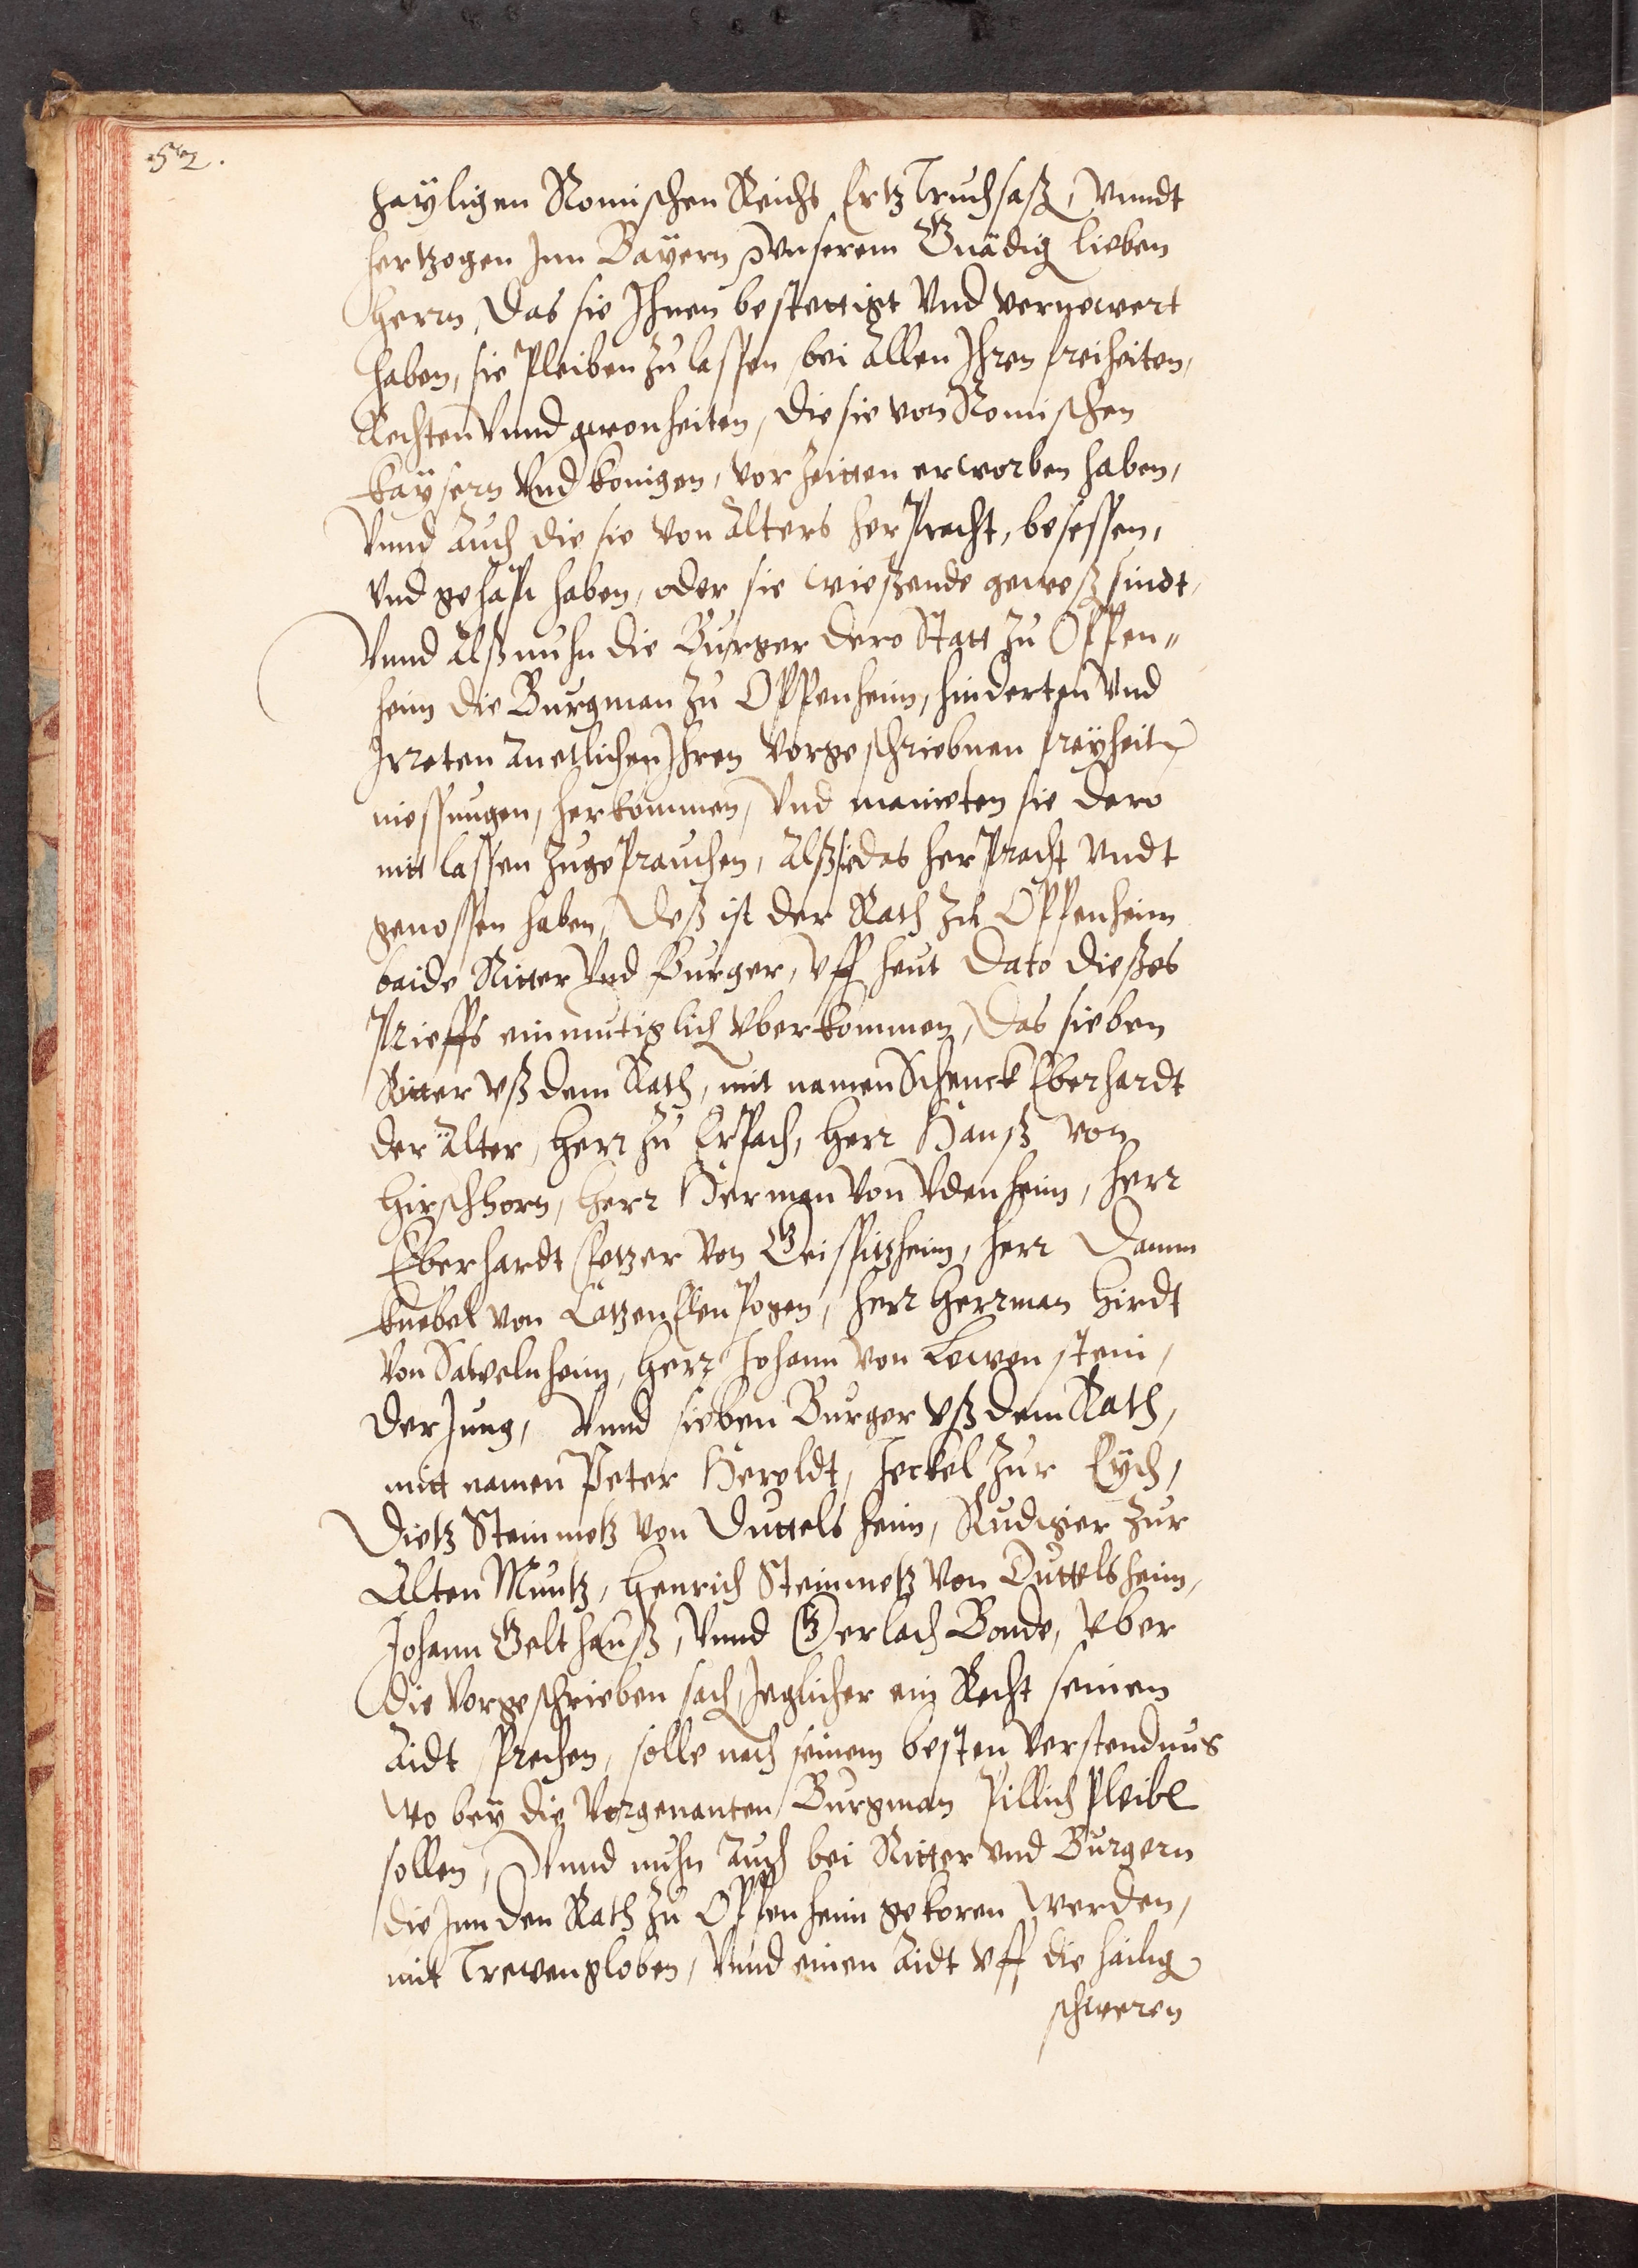 52.
hayligen Romischen Reichs Ertz Truchsaß, Vnndt
hertzogen Jnn Bayern Vnserem Gnädig lieben
Herrn, Das sie Jhnen bestettigt Vnd vernewert
haben, sie Pleiben zu lassen bei Allen Jhren freiheiten,
Rechten Vnnd gwonheiten, die sie von Romischen
kaÿsern Vnd konigen, vor zeitten erworben haben,
Vnnd Auch die sie von Alters her Pracht, besessen,
Vnd gehapt haben, oder sie wießende geweß sindt,
Vnnd Alß nuhn die Burger dero Statt zu Oppen„
heim die Burgman zu Oppenheim, hinderten Vnd
Jrreten An etlichen Jhren vorgeschriebnen freÿheit
niessungen, herkommen, Vnd mainten sie dero
nitt lassen zugePrauchen, Alß sie das her Pracht Vndt
genossen haben, Deß ist der Rath zu Oppenheim
baide Ritter Vnd Burger, Vff heut Dato dießes
Prieffs einmutiglich Vberkommen, Das sieben
Ritter vß dem Rath, mit namen Schenck Eberhardt
der Älter, Herr zu Erpach, Herr Hanß von
Hirschhorn, Herr Herman von Vdenheim, Herr
Eberhardt Fetzer von Geispitzheim, Herr Damm
knebel von CatzenElenPogen, Herr Herrman Hirdt
von Sawelnheim, Herr Johann von Lewenstein,
der Jung, Vnnd sieben Burger vß dem Rath,
mitt namen Peter Heroldt, Jeckel zur Eÿch,
Dietz Steinmetz von Duttelsheim, Rudiger zur
Alten Muntz, Henrich Steinmetz von Duttelsheim,
Johann Gelthauß, Vnnd Gerlach Bonde, Vber
die vorgeschrieben sach, Jeglicher ein Recht seinen
Aidt sprechen, solle nach seinem besten Verstendnus
Wo beÿ die vorgenanten Burgman Pillich Pleibe
sollen, Vnnd nuhn Auch bei Ritter vnd Burgern
die Jnn den Rath zu Oppenheim gekoren werden,
mit Trewen globen, Vnnd einen Aidt Vff die hailig
schweren